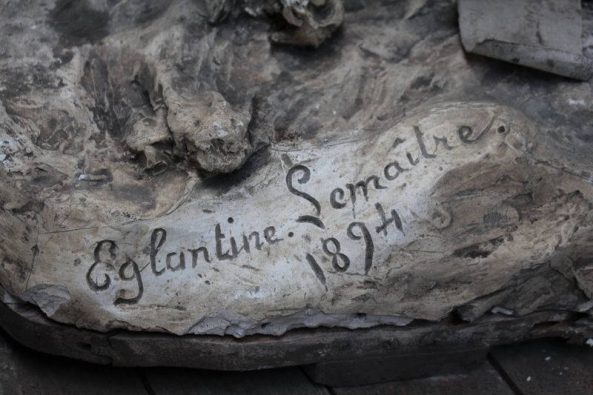 Eglantine. Lemaître.
1894